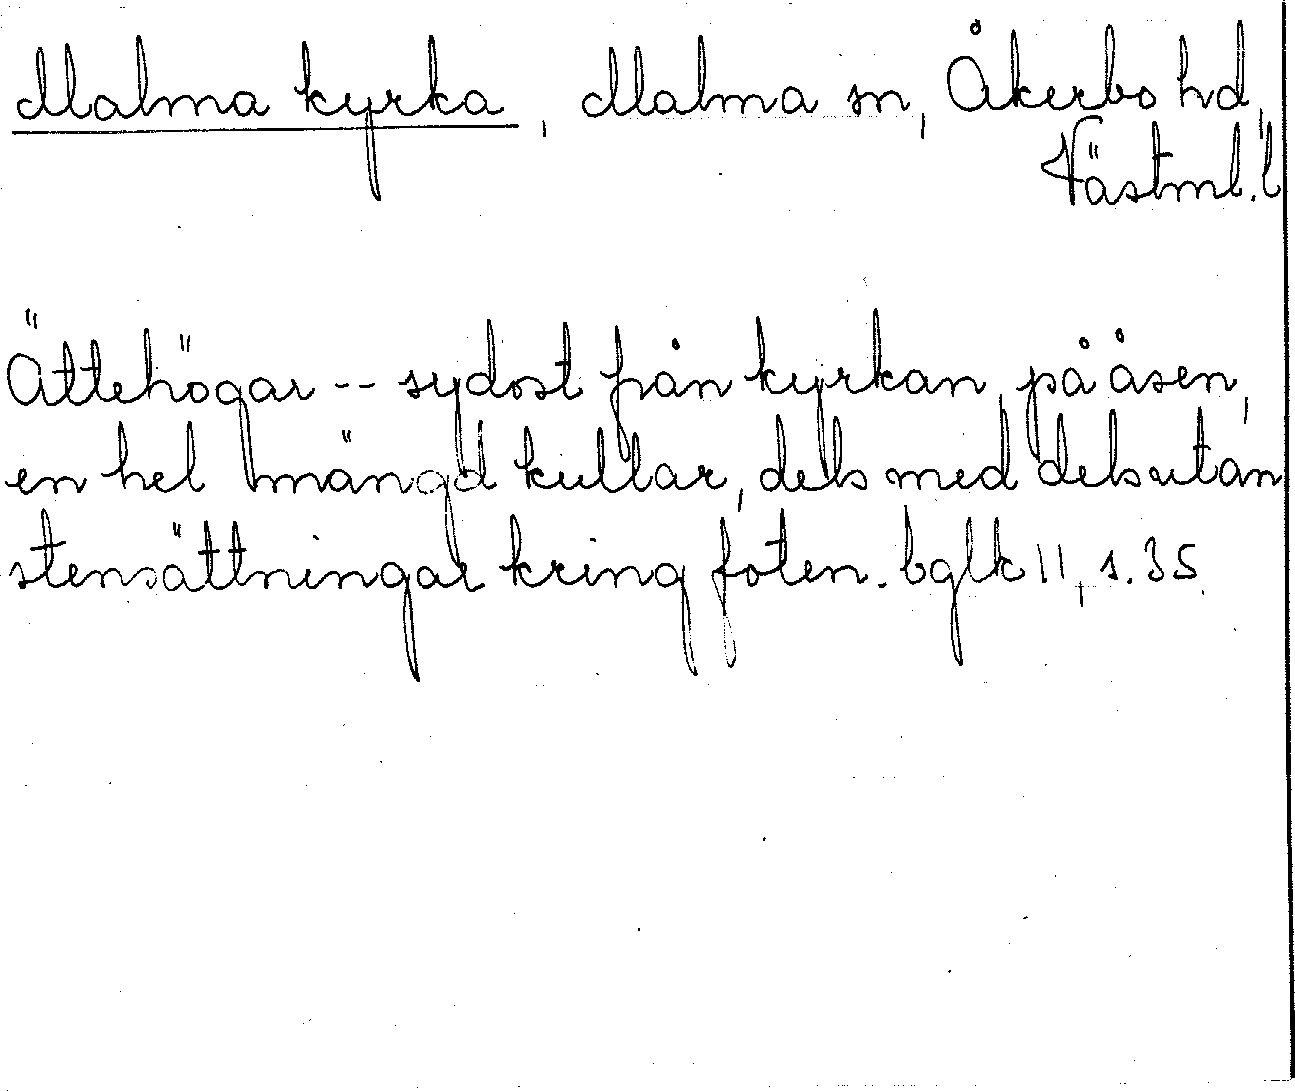 Malma kyrka, Malma sn, Åkerbo hd,
Västml. l
Ättehögar -- sydost från kyrkan, på åsen,
en hel mängd kullar, dels med dels utan
stensättningar kring foten. bglk II, s. 35